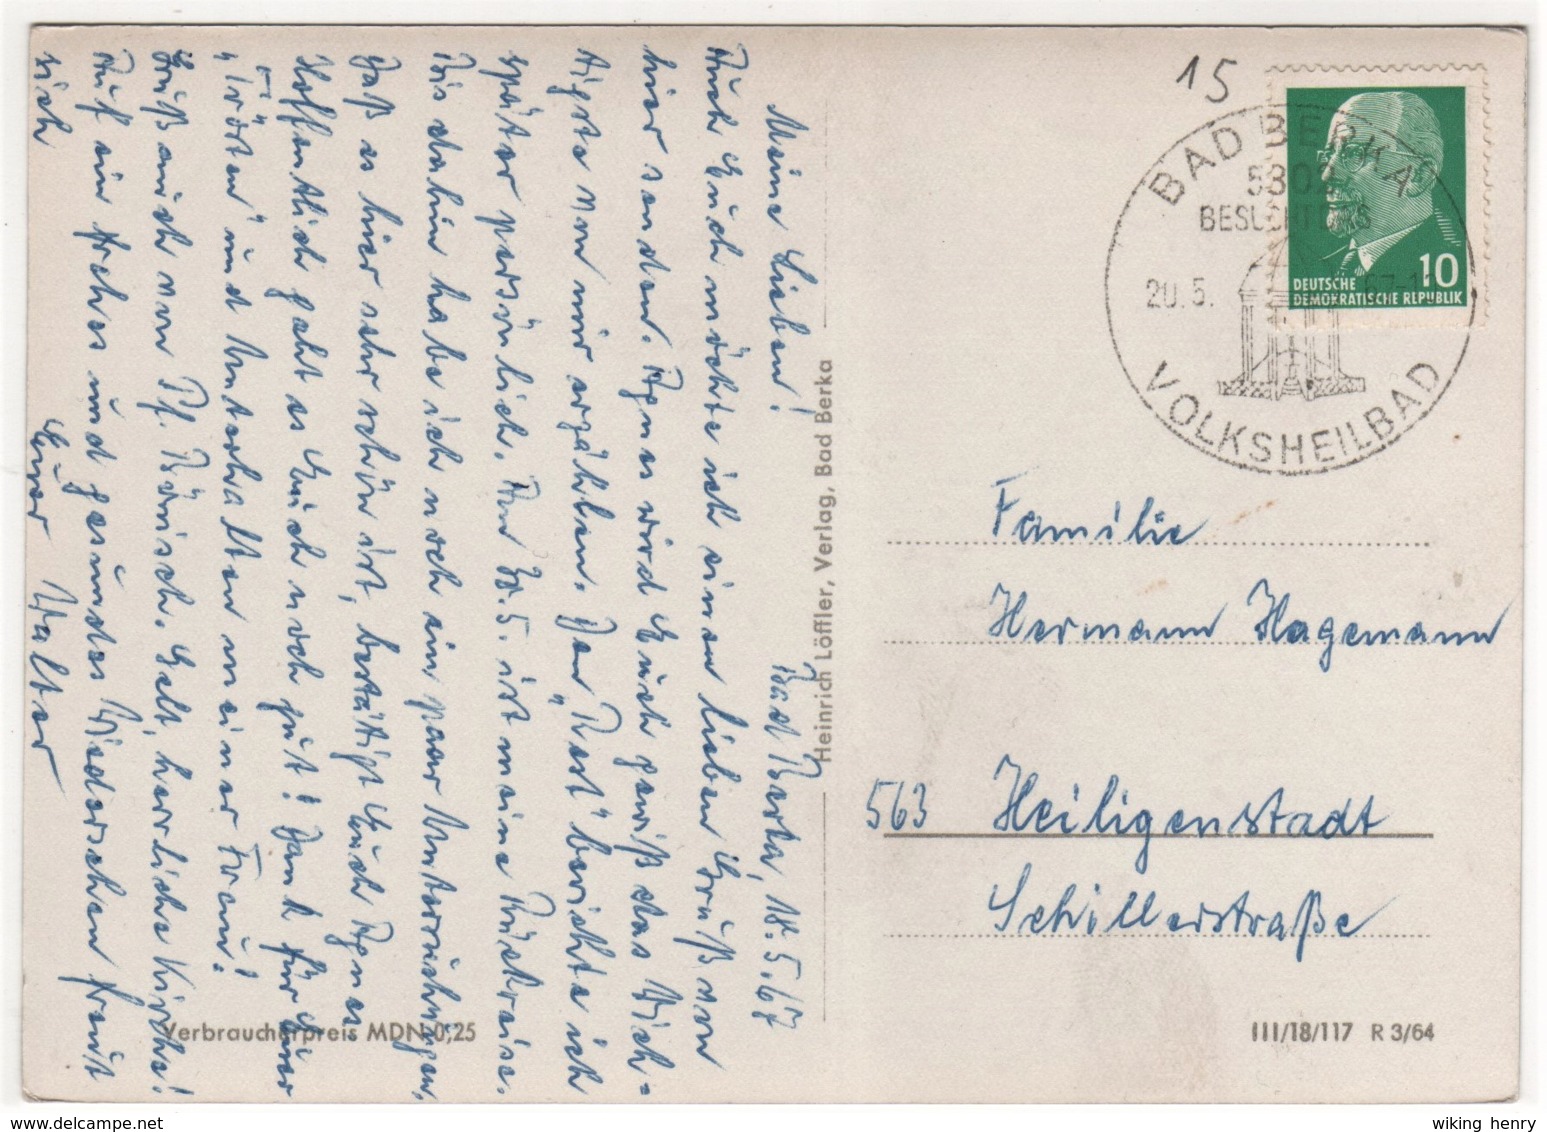 Bad Berka, 18.5.67
Meine Lieben!
Auch Euch möchte ich einen lieben Gruß von
hier senden. Agnes wird Euch gewiß das Wich-
tigste von mir erzählen. Den „Rest“ berichte ich
später persönlich. Am 30.5. ist meine Rückreise.
Bis dahin habe ich noch ein paar Untersuchungen.
Daß es hier sehr schön ist, bestätigt Euch Agnes.
Hoffentlich geht es Euch noch gut! Dank für Euer
„Trösten“ und Unterhalten meiner Frau!
Gruß auch von Pf. Rönisch. Gelt, herrliche Kirche!
Auf ein frohes und gesundes Wiedersehen freut
sich
Euer Walter
Heinrich Löffler, Verlag, Bad Berka
Verbraucherpreis MDN 0,25
15
BAD BERKA
5302
BESUCHT DAS
20.5. 67-1
VOLKSHEILBAD
10
DEUTSCHE
DEMOKRATISCHE REPUBLIK
Familie
Hermann Hagemann
563 Heiligenstadt
Schillerstraße
III/18/117 R 3/64
wiking henry